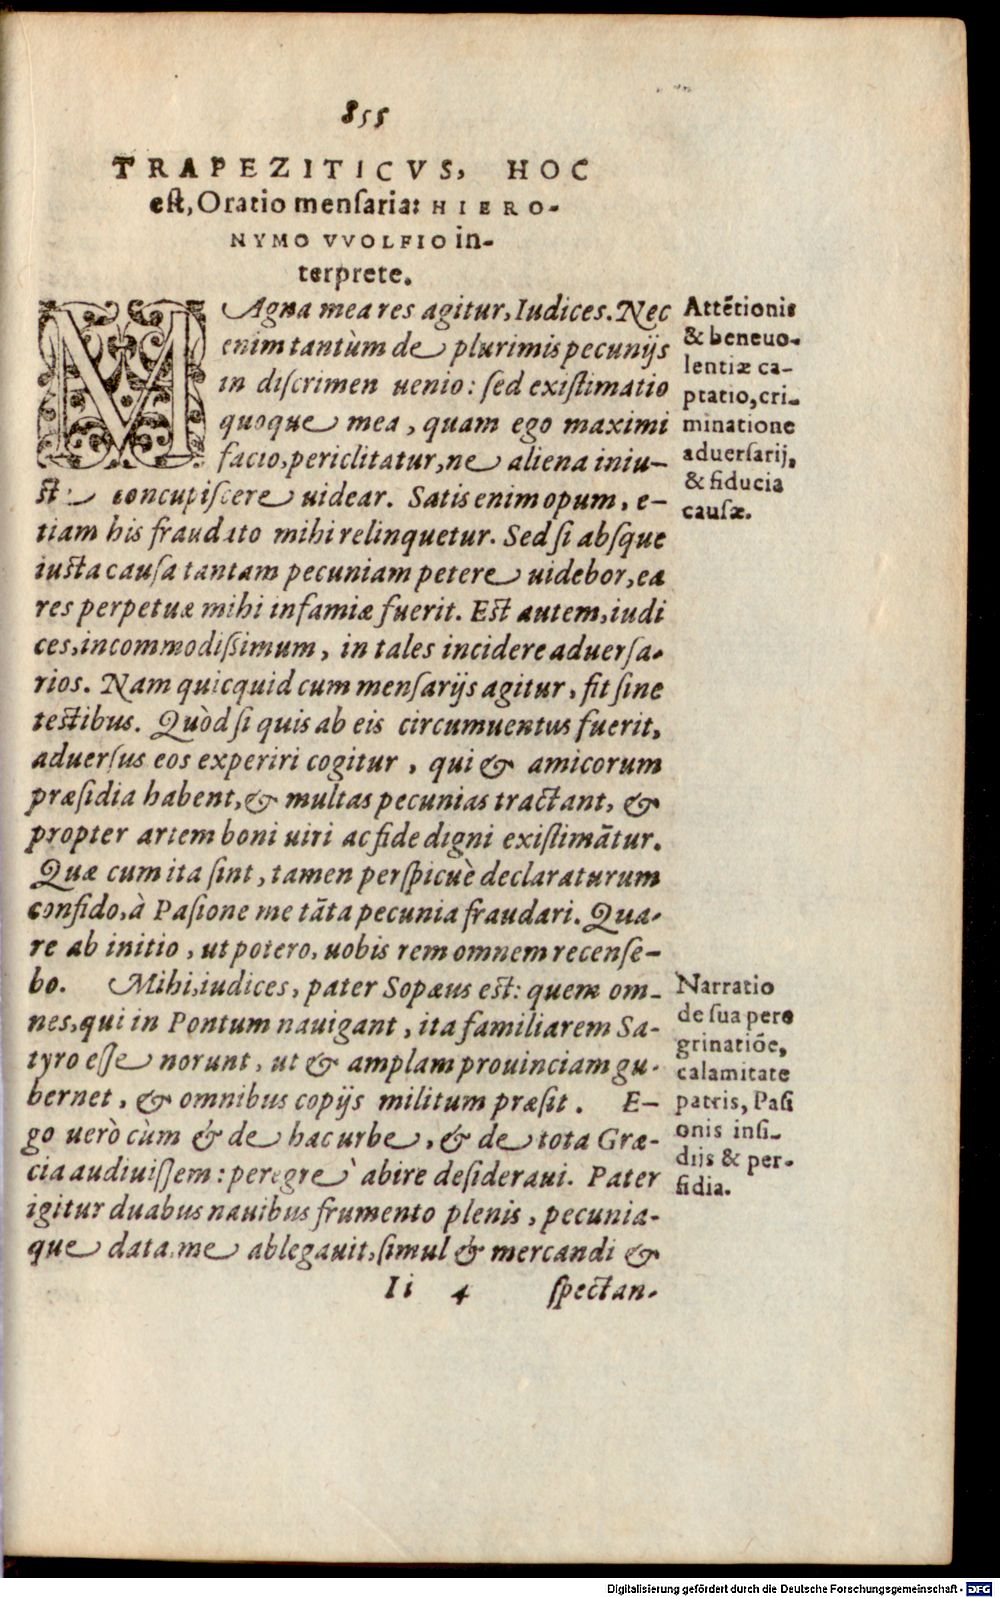 855
TRAPEZITICVS, HOC
est, Oratio mensaria: HIERO-
NYMO VVOLFIO in-
terprete.
MAgna mea res agitur, Iudices. Nec
enim tantùm de plurimis pecunijs
in discrimen uenio: sed existimatio
quoque mea, quam ego maximi
facio, periclitatur, ne aliena iniu-
stè concupiscere uidear. Satis enim opum, e-
tiam his fraudato mihi relinquetur. Sed si absque
iusta causa tantam pecuniam petere uidebor, ea
res perpetuæ mihi infamiæ fuerit. Est autem, iudi
ces, incommodissimum, in tales incidere aduersa-
rios. Nam quicquid cum mensarijs agitur, fit sine
testibus. Quòd si quis ab eis circumuentus fuerit,
aduersus eos experiri cogitur, qui & amicorum
præsidia habent, & multas pecunias tractant, &
propter artem boni uiri ac fide digni existimātur.
Quæ cum ita sint, tamen perspicuè declaraturum
confido, à Pasione me tāta pecunia fraudari. Qua-
re ab initio, ut potero, uobis rem omnem recense-
bo. Mihi, iudices, pater Sopæus est: quem om-
nes, qui in Pontum nauigant, ita familiarem Sa-
tyro esse norunt, ut & amplam prouinciam gu-
bernet, & omnibus copijs militum præsit. E-
go uerò cùm & de hac urbe, & de tota Græ-
cia audiuissem: peregrè abire desideraui. Pater
igitur duabus nauibus frumento plenis, pecunia-
que data, me ablegauit, simul & mercandi &
Ii 4 spectan-
Attētionis
& beneuo-
lentiæ ca-
ptatio, cri-
minatione
aduersarij,
& fiducia
causæ.
Narratio
de sua pere
grinatiōe,
calamitate
patris, Pasi
onis insi-
dijs & per-
fidia.
Digitalisierung gefördert durch die Deutsche Forschungsgemeinschaft - DFG